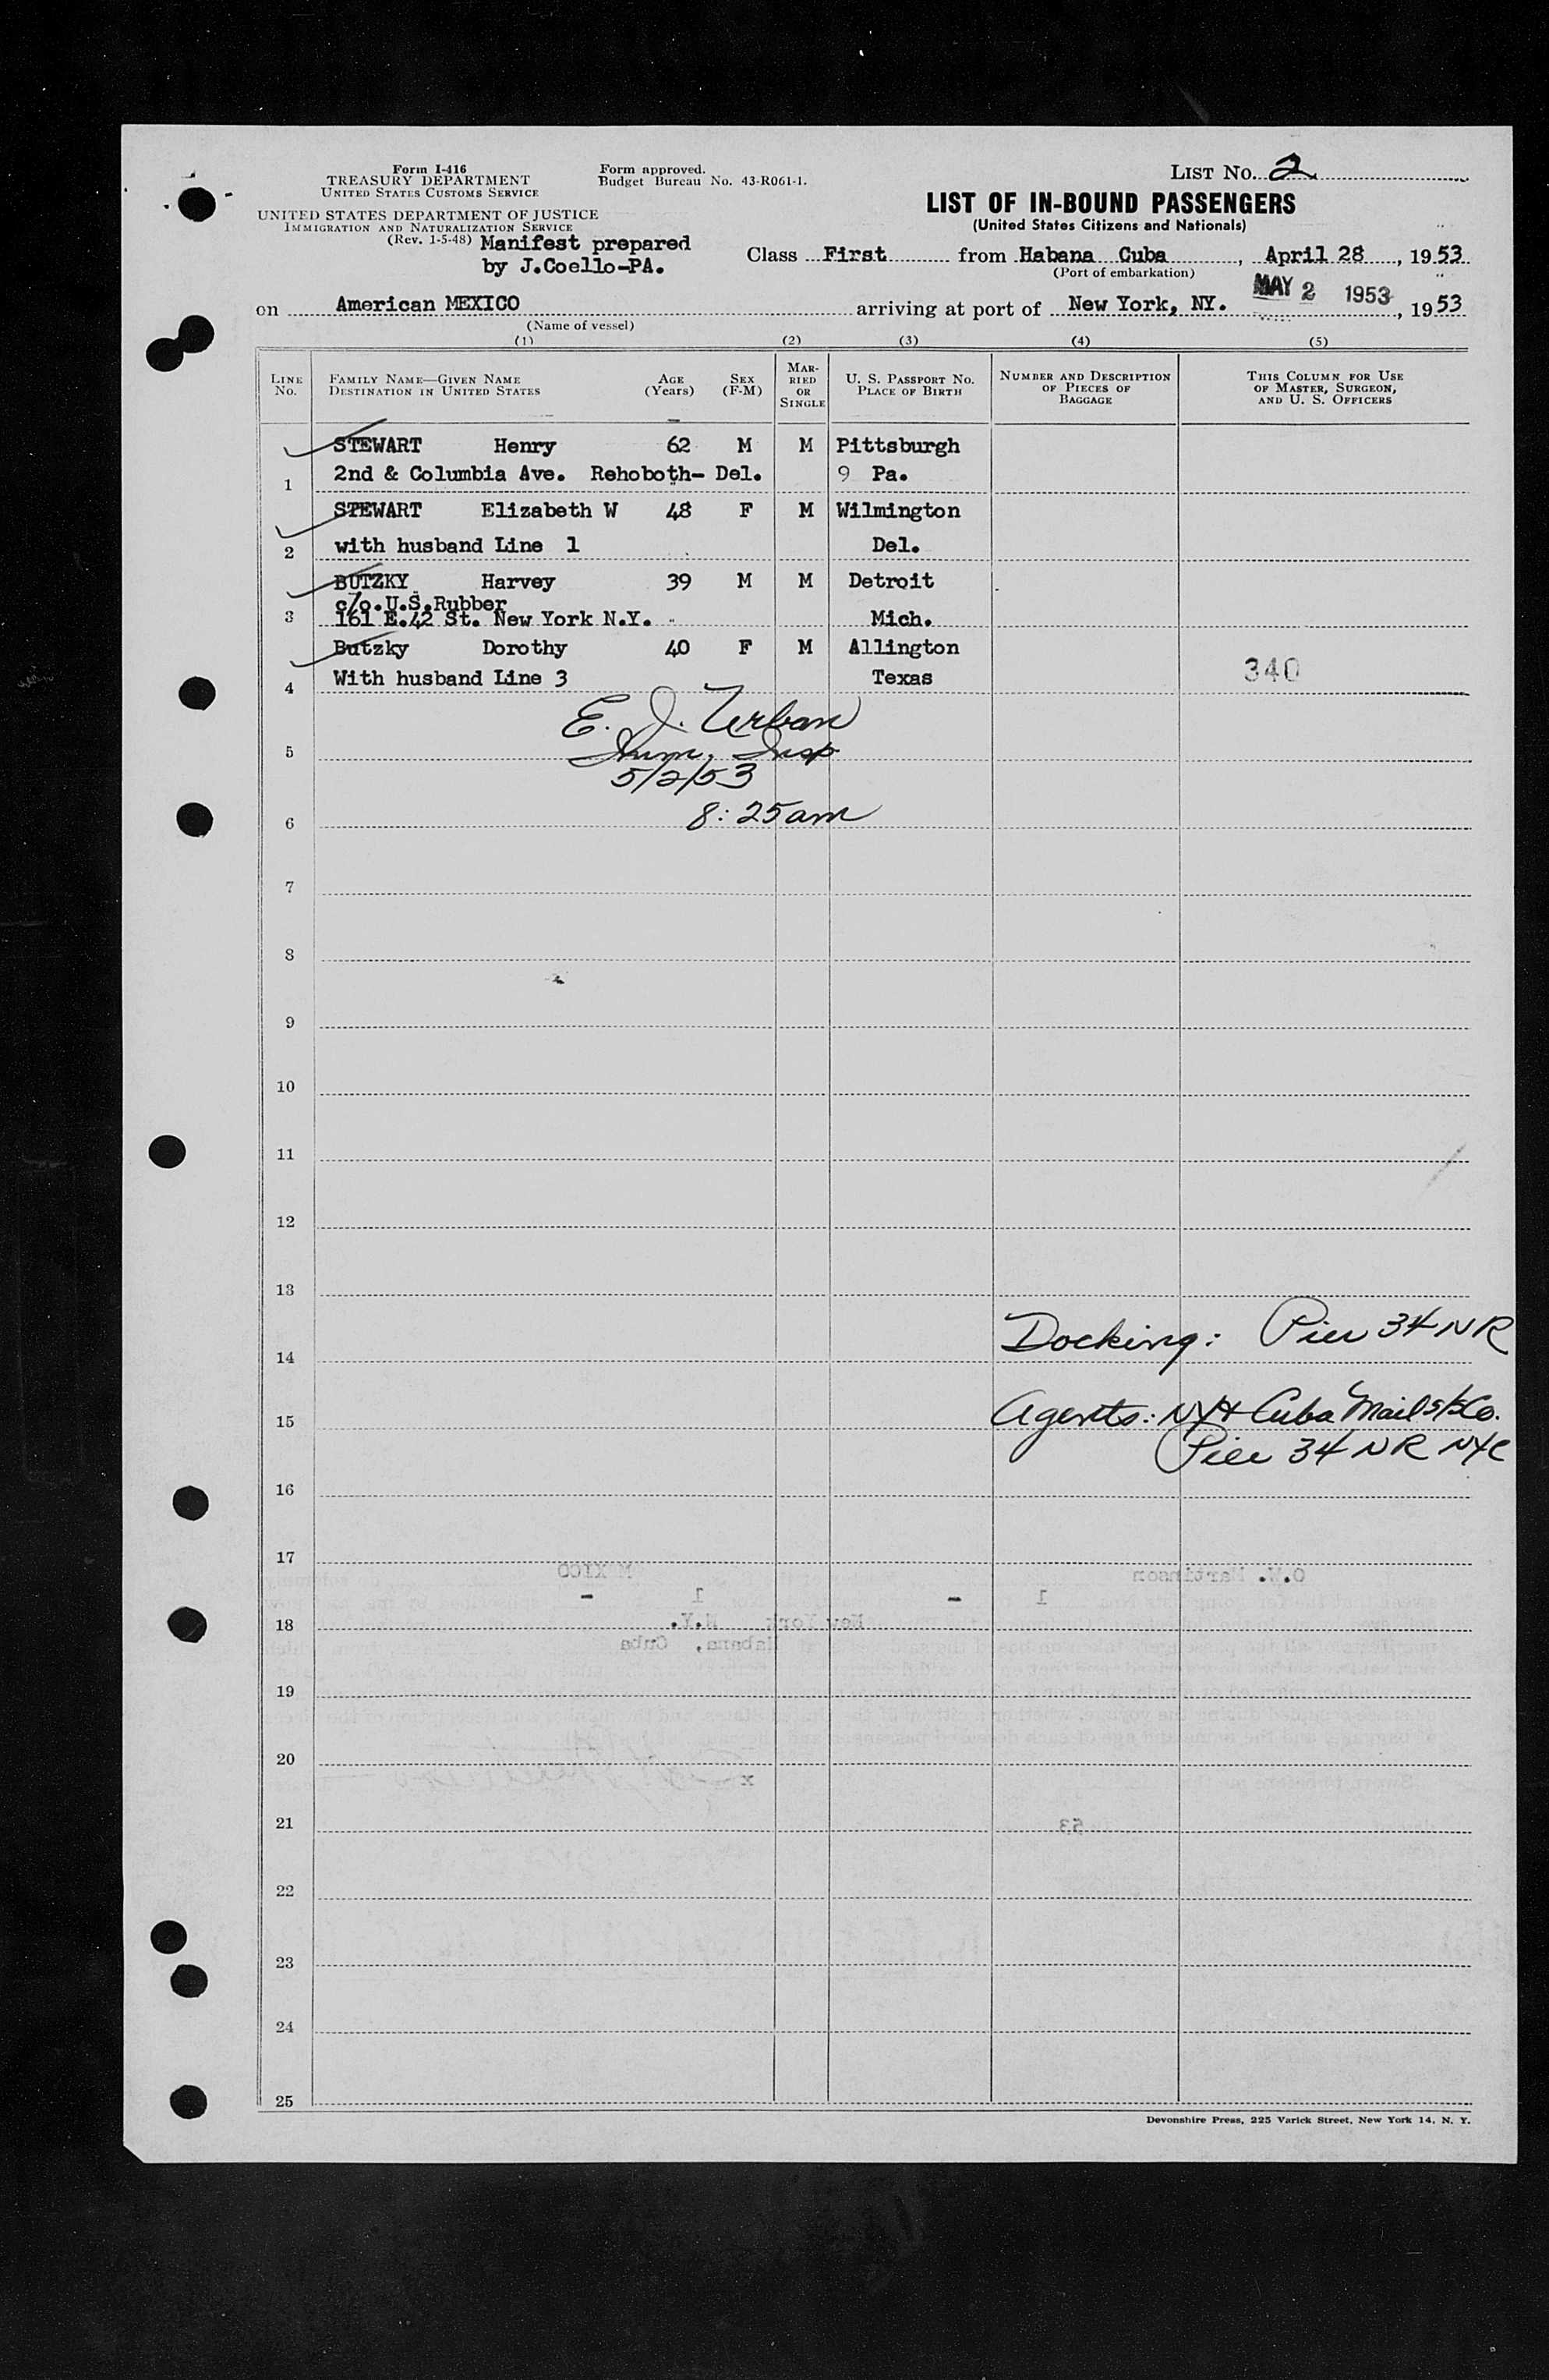 Form I-416
TREASURY DEPARTMENT
UNITED STATES CUSTOMS SERVICE
Form approved.
Budget Bureau No. 43-R061-1.
LIST NO. 2
UNITED STATES DEPARTMENT OF JUSTICE
IMMIGRATION AND NATURALIZATION SERVICE
(Rev. 1-5-48) Manifest prepared
by J.Coello-PA.
LIST OF IN-BOUND PASSENGERS
(United States Citizens and Nationals)
Class First from Habana Cuba, April 28, 1953
(Port of embarkation)
on American MEXICO arriving at port of New York, NY. MAY 2 1953, 1953
(Name of vessel)
(1) (2) (3) (4) (5)
LINE NO.
FAMILY NAME—GIVEN NAME
DESTINATION IN UNITED STATES
AGE (Years)
SEX (F-M)
MARRIED OR SINGLE
U. S. PASSPORT NO.
PLACE OF BIRTH
NUMBER AND DESCRIPTION
OF PIECES OF
BAGGAGE
THIS COLUMN FOR USE
OF MASTER, SURGEON,
AND U. S. OFFICERS
STEWART Henry 62 M M Pittsburgh
1 2nd & Columbia Ave. Rehoboth- Del. 9 Pa.
STEWART Elizabeth W 48 F M Wilmington
2 with husband Line 1 Del.
BUTZKY Harvey 39 M M Detroit
c/o.U.S.Rubber
3 161 E.42 St. New York N.Y. Mich.
Butzky Dorothy 40 F M Allington
4 With husband Line 3 Texas 340
E. J. Urban
5 Imm. Insp
5/2/53
6 8:25am
7
8
9
10
11
12
13
14 Docking: Pier 34 NR
15 Agents: NY+ Cuba Mail S/S Co.
Pier 34 NR NYC
16
17
MEXICO
O.W. Martinson
1 1
18 New York N.Y.
Habana, Cuba
19
20
x
21 53
22
23
24
25
Devonshire Press, 225 Varick Street, New York 14, N. Y.